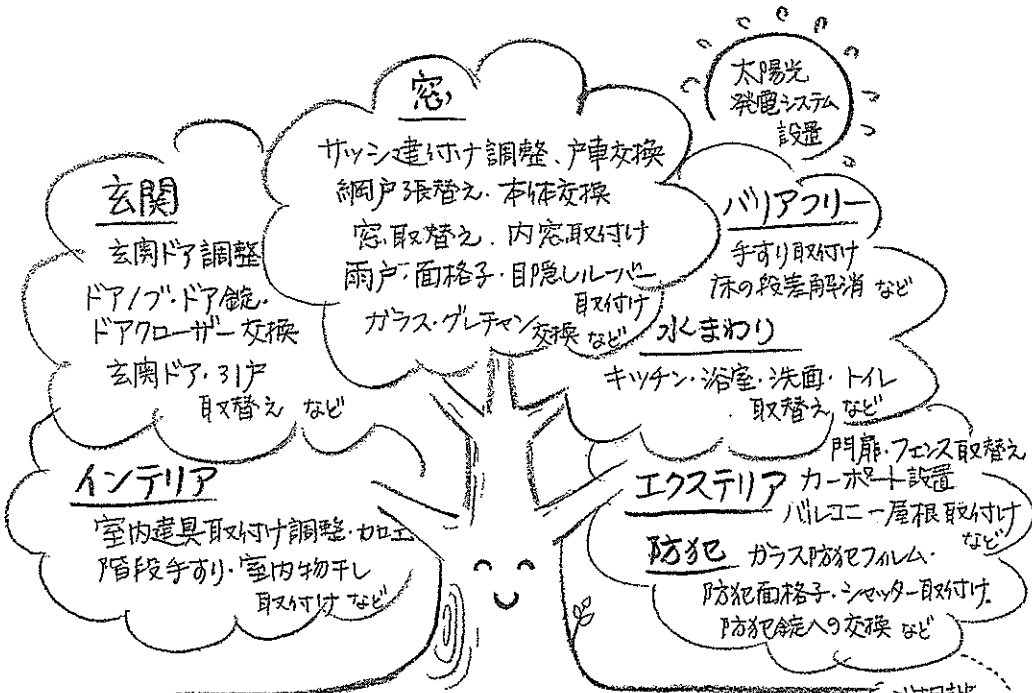 太陽光
発電システム
設置
窓
サッシ建付け調整、戸車交換
網戸張替え・本体交換
窓取替え、内窓取付け
雨戸・面格子・目隠しルーバー
取付け
ガラス・グレチャン交換 など
玄関
玄関ドア調整
ドアノブ・ドア錠・
ドアクローザー交換
玄関ドア・引戸
取替え など
バリアフリー
手すり取付け
床の段差解消 など
水まわり
キッチン・浴室・洗面・トイレ
取替え など
インテリア
室内建具取付け調整・加工
階段手すり・室内物干し
取付け など
エクステリア
門扉・フェンス取替え
カーポート設置
バルコニー屋根取付け
など
防犯
ガラス防犯フィルム・
防犯面格子・シャッター取付け。
防犯錠への交換 など